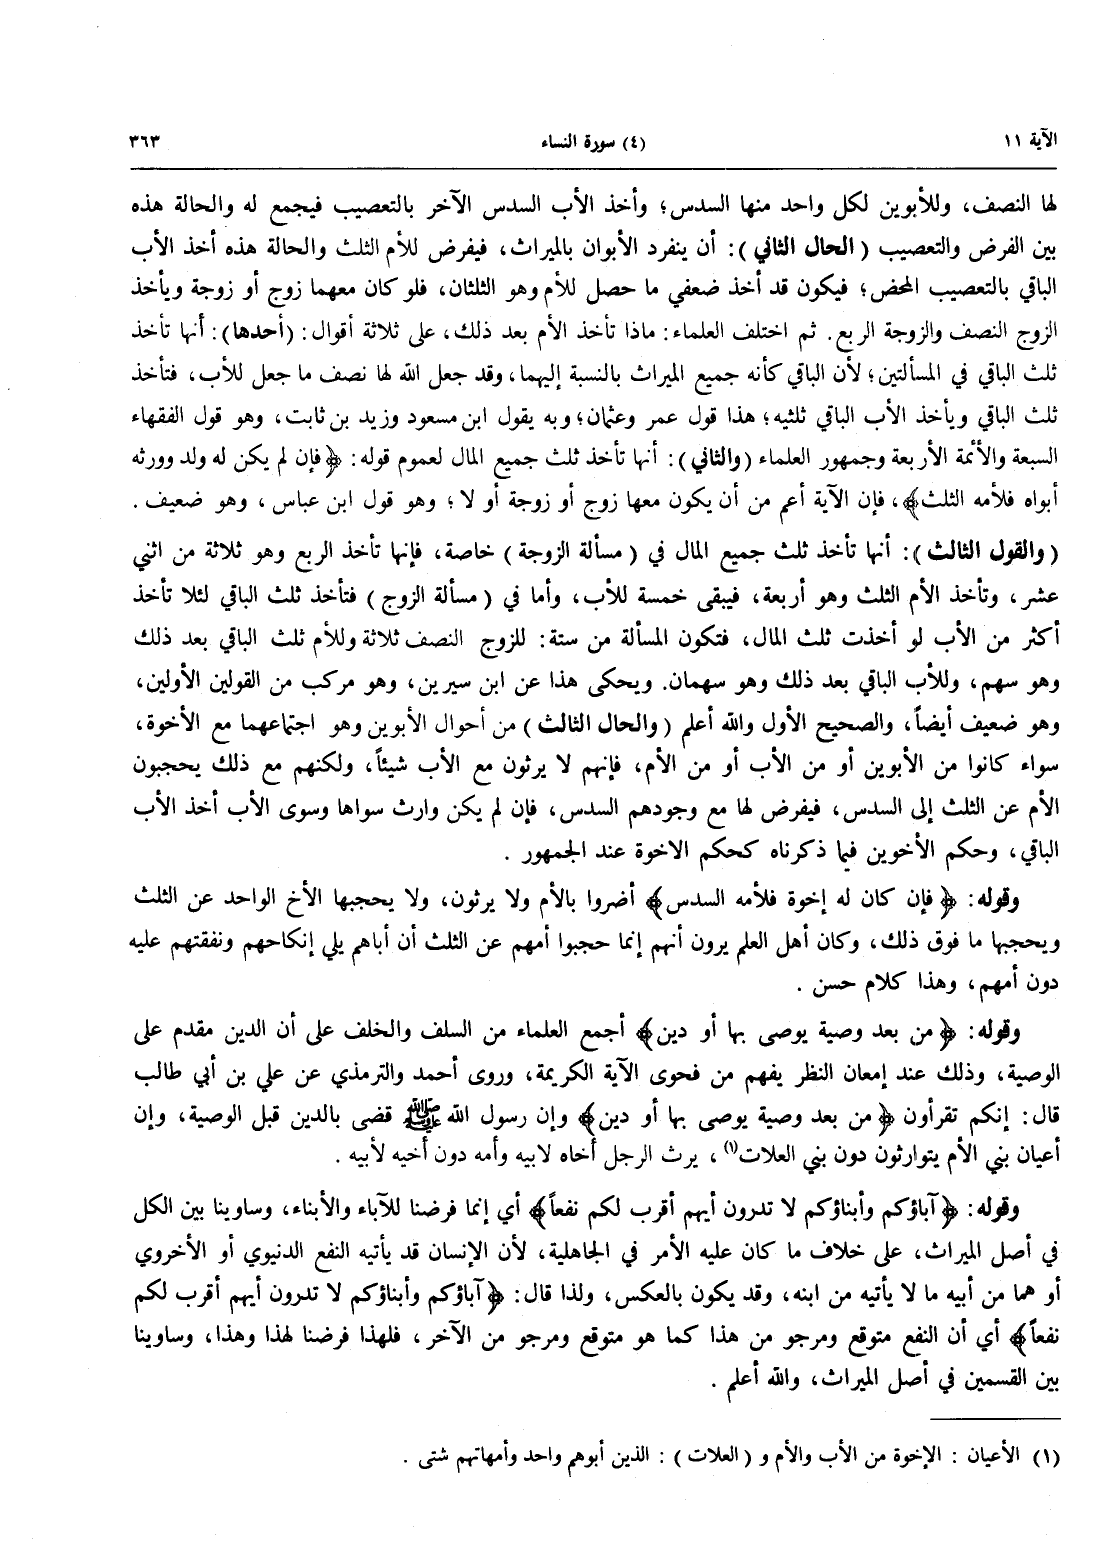 الآية ١١
(٤) سورة النساء
٣٦٣
لها النصف، وللأبوين لكل واحد منها السدس؛ وأخذ الأب السدس الآخر بالتعصيب فيجمع له والحالة هذه
بين الفرض والتعصيب (الحال الثاني): أن ينفرد الأبوان بالميراث، فيفرض للأم الثلث والحالة هذه أخذ الأب
الباقي بالتعصيب المحض؛ فيكون قد أخذ ضعفي ما حصل للأم وهو الثلثان، فلو كان معهما زوج أو زوجة ويأخذ
الزوج النصف والزوجة الربع. ثم اختلف العلماء: ماذا تأخذ الأم بعد ذلك، على ثلاثة أقوال: (أحدها): أنها تأخذ
ثلث الباقي في المسألتين؛ لأن الباقي كأنه جميع الميراث بالنسبة إليهما، وقد جعل الله لها نصف ما جعل للأب، فتأخذ
ثلث الباقي ويأخذ الأب الباقي ثلثيه؛ هذا قول عمر وعثمان؛ وبه يقول ابن مسعود وزيد بن ثابت، وهو قول الفقهاء
السبعة والأئمة الأربعة وجمهور العلماء (والثاني): أنها تأخذ ثلث جميع المال لعموم قوله: ﴿فإن لم يكن له ولد وورثه
أبواه فلأمه الثلث﴾، فإن الآية أعم من أن يكون معها زوج أو زوجة أو لا؛ وهو قول ابن عباس، وهو ضعيف.
(والقول الثالث): أنها تأخذ ثلث جميع المال في (مسألة الزوجة) خاصة، فإنها تأخذ الربع وهو ثلاثة من اثني
عشر، وتأخذ الأم الثلث وهو أربعة، فيبقى خمسة للأب، وأما في (مسألة الزوج) فتأخذ ثلث الباقي لئلا تأخذ
أكثر من الأب لو أخذت ثلث المال، فتكون المسألة من ستة: للزوج النصف ثلاثة وللأم ثلث الباقي بعد ذلك
وهو سهم، وللأب الباقي بعد ذلك وهو سهمان. ويحكى هذا عن ابن سيرين، وهو مركب من القولين الأولين،
وهو ضعيف أيضاً، والصحيح الأول والله أعلم (والحال الثالث) من أحوال الأبوين وهو اجتماعهما مع الأخوة،
سواء كانوا من الأبوين أو من الأب أو من الأم، فإنهم لا يرثون مع الأب شيئاً، ولكنهم مع ذلك يحجبون
الأم عن الثلث إلى السدس، فيفرض لها مع وجودهم السدس، فإن لم يكن وارث سواها وسوى الأب أخذ الأب
الباقي، وحكم الأخوين فيما ذكرناه كحكم الاخوة عند الجمهور.
وقوله: ﴿فإن كان له إخوة فلأمه السدس﴾ أضروا بالأم ولا يرثون، ولا يحجبها الأخ الواحد عن الثلث
ويحجبها ما فوق ذلك، وكان أهل العلم يرون أنهم إنما حجبوا أمهم عن الثلث أن أباهم يلي إنكاحهم ونفقتهم عليه
دون أمهم، وهذا كلام حسن.
وقوله: ﴿من بعد وصية يوصى بها أو دين﴾ أجمع العلماء من السلف والخلف على أن الدين مقدم على
الوصية، وذلك عند إمعان النظر يفهم من فحوى الآية الكريمة، وروى أحمد والترمذي عن علي بن أبي طالب
قال: إنكم تقرأون ﴿من بعد وصية يوصى بها أو دين﴾ وإن رسول الله ﷺ قضى بالدين قبل الوصية، وإن
أعيان بني الأم يتوارثون دون بني العلات(١)، يرث الرجل أخاه لابيه وأمه دون أخيه لأبيه.
وقوله: ﴿آباؤكم وأبناؤكم لا تدرون أيهم أقرب لكم نفعاً﴾ أي إنما فرضنا للآباء والأبناء، وساوينا بين الكل
في أصل الميراث، على خلاف ما كان عليه الأمر في الجاهلية، لأن الإنسان قد يأتيه النفع الدنيوي أو الأخروي
أو هما من أبيه ما لا يأتيه من ابنه، وقد يكون بالعكس، ولذا قال: ﴿آباؤكم وأبناؤكم لا تدرون أيهم أقرب لكم
نفعاً﴾ أي أن النفع متوقع ومرجو من هذا كما هو متوقع ومرجو من الآخر، فلهذا فرضنا لهذا وهذا، وساوينا
بين القسمين في أصل الميراث، والله أعلم.
(١) الأعيان : الإخوة من الأب والأم و (العلات) : الذين أبوهم واحد وأمهاتهم شتى.